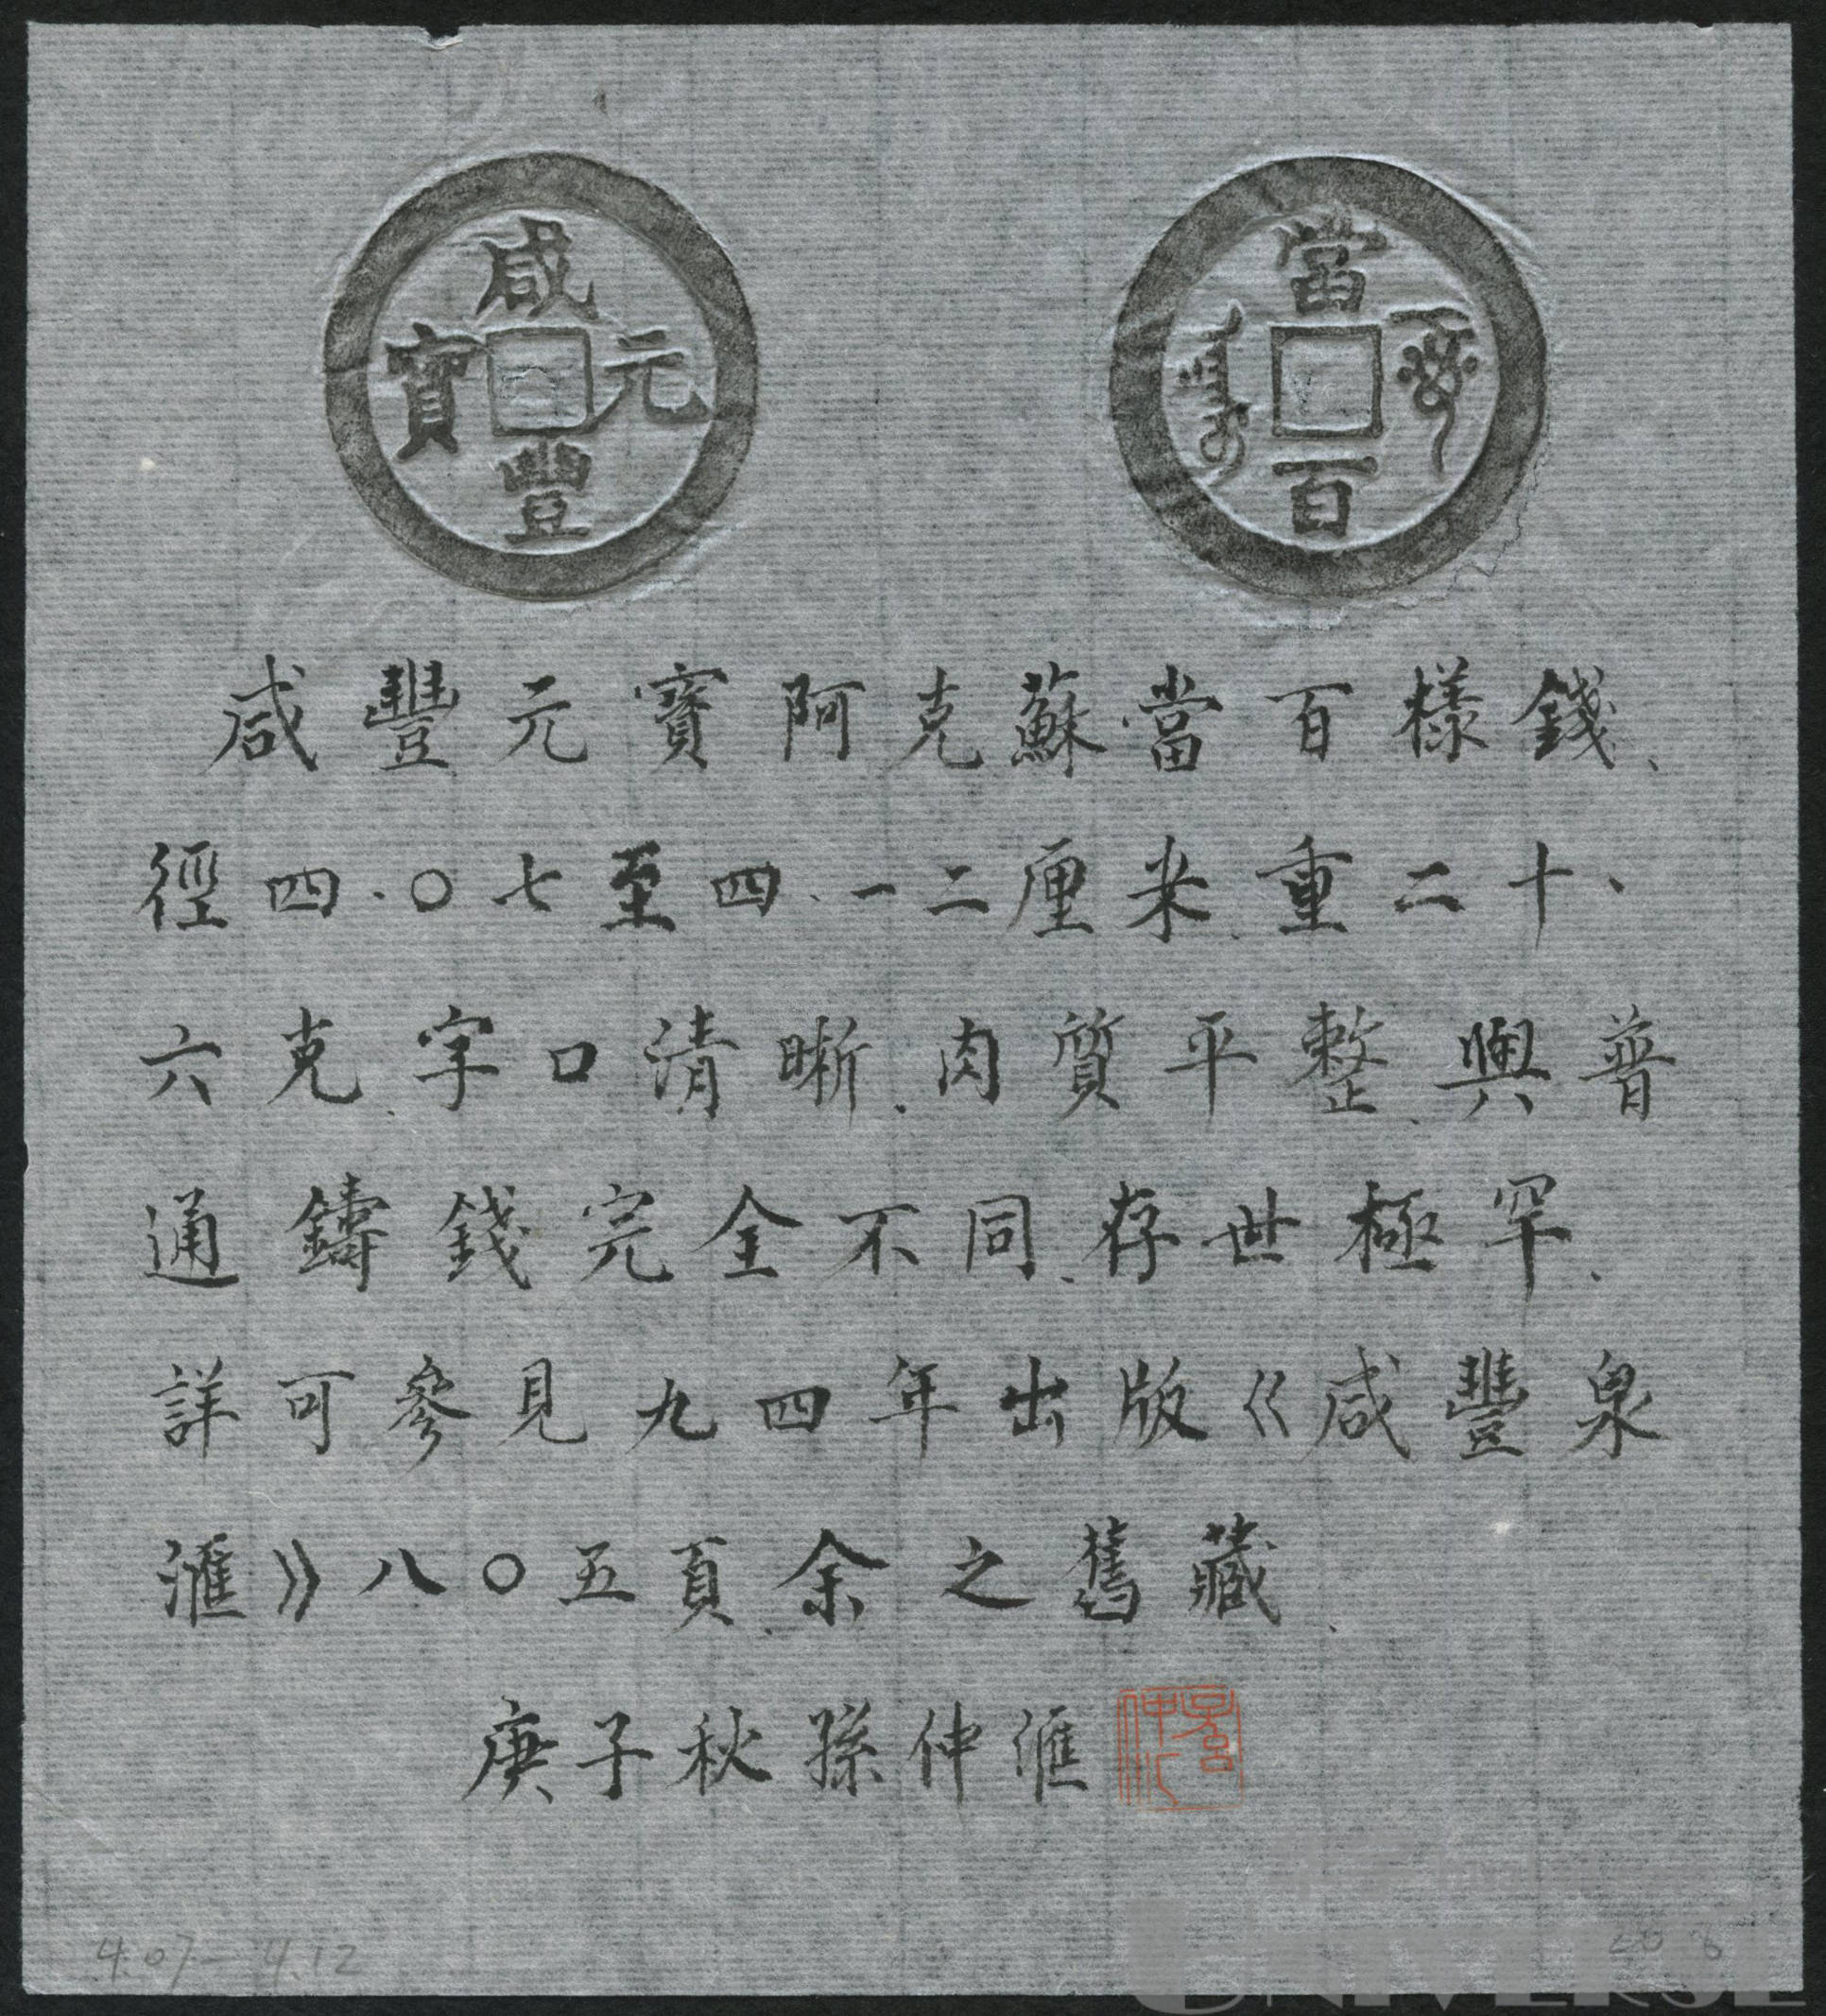 咸豐元寶
當百
咸豐元寶阿克蘇當百樣錢、
徑四.〇七至四.一二厘米、重二十、
六克、字口清晰、肉質平整、與普
通鑄錢完全不同、存世極罕、
詳可參見九四年出版《咸豐泉
滙》八〇五頁、余之舊藏、
庚子秋孫仲滙
4.07-4.12
UNIVERSE